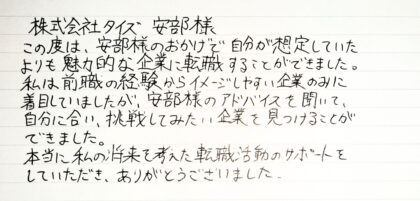 株式会社タイズ 安部様
この度は、安部様のおかげで自分が想定していた
よりも魅力的な企業に転職することができました。
私は前職の経験からイメージしやすい企業のみに
着目していましたが、安部様のアドバイスを聞いて、
自分に合い、挑戦してみたい企業を見つけることが
できました。
本当に私の将来を考えた転職活動のサポートを
していただき、ありがとうございました。